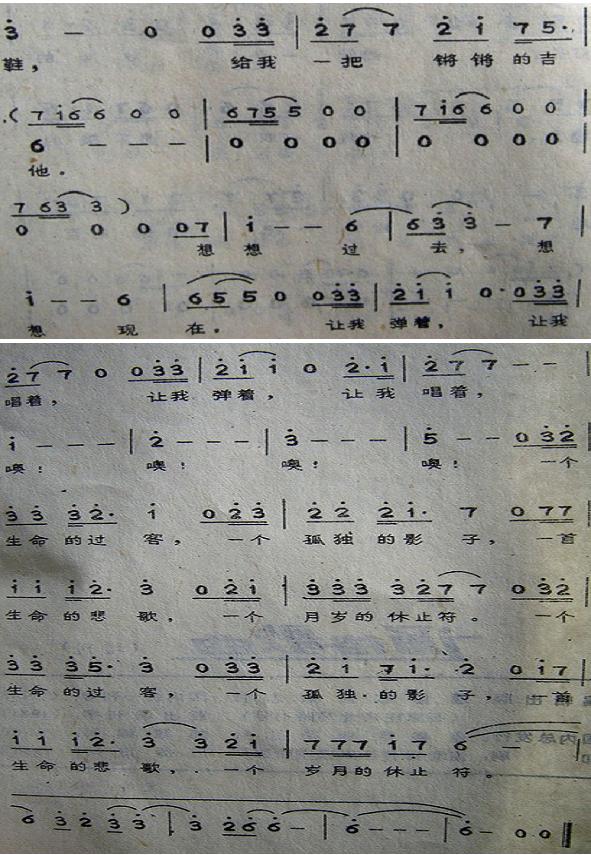 3 — 0 0 3 3 | 2 7 7 2 1 7 5·
鞋， 给我 一把 锵锵的吉
( 7 1 6 6 0 0 | 6 7 5 5 0 0 | 7 1 6 6 0 0
6 — — — | 0 0 0 0 | 0 0 0 0
他。
7 6 3 3 )
0 0 0 0 7 | 1 — — 6 | 6 3 3 — 7 |
想 想 过 去， 想
1 — — 6 | 6 5 5 0 0 3 3 | 2 1 1 0· 0 3 3 |
想 现 在。 让我 弹着， 让我
2 7 7 0 0 3 3 | 2 1 1 0 2·1 | 2 7 7 — —
唱着， 让我 弹着， 让我 唱着，
1 — — — | 2 — — — | 3 — — — | 5 — — 0 3 2
噢！ 噢！ 噢！ 噢！ 一个
3 3 3 2· 1 0 2 3 | 2 2 2 1· 7 0 7 7
生命的过 客， 一个 孤独的影 子， 一首
1 1 1 2· 3 0 2 1 | 3 3 3 3 2 7 7 0 3 2
生命的悲 歌， 一个 月岁的休止符。 一个
3 3 3 5· 3 0 3 3 | 2 1 7 1· 2 0 1 7
生命的过 客， 一个 孤独的影 子， 一首
1 1 1 2· 3 3 2 1 | 7 7 7 1 7 6 —
生命的悲 歌， 一个 岁月的休止 符。
6 3 2 3 3 | 3 2 6 6 — | 6 — — — | 6 — 0 0